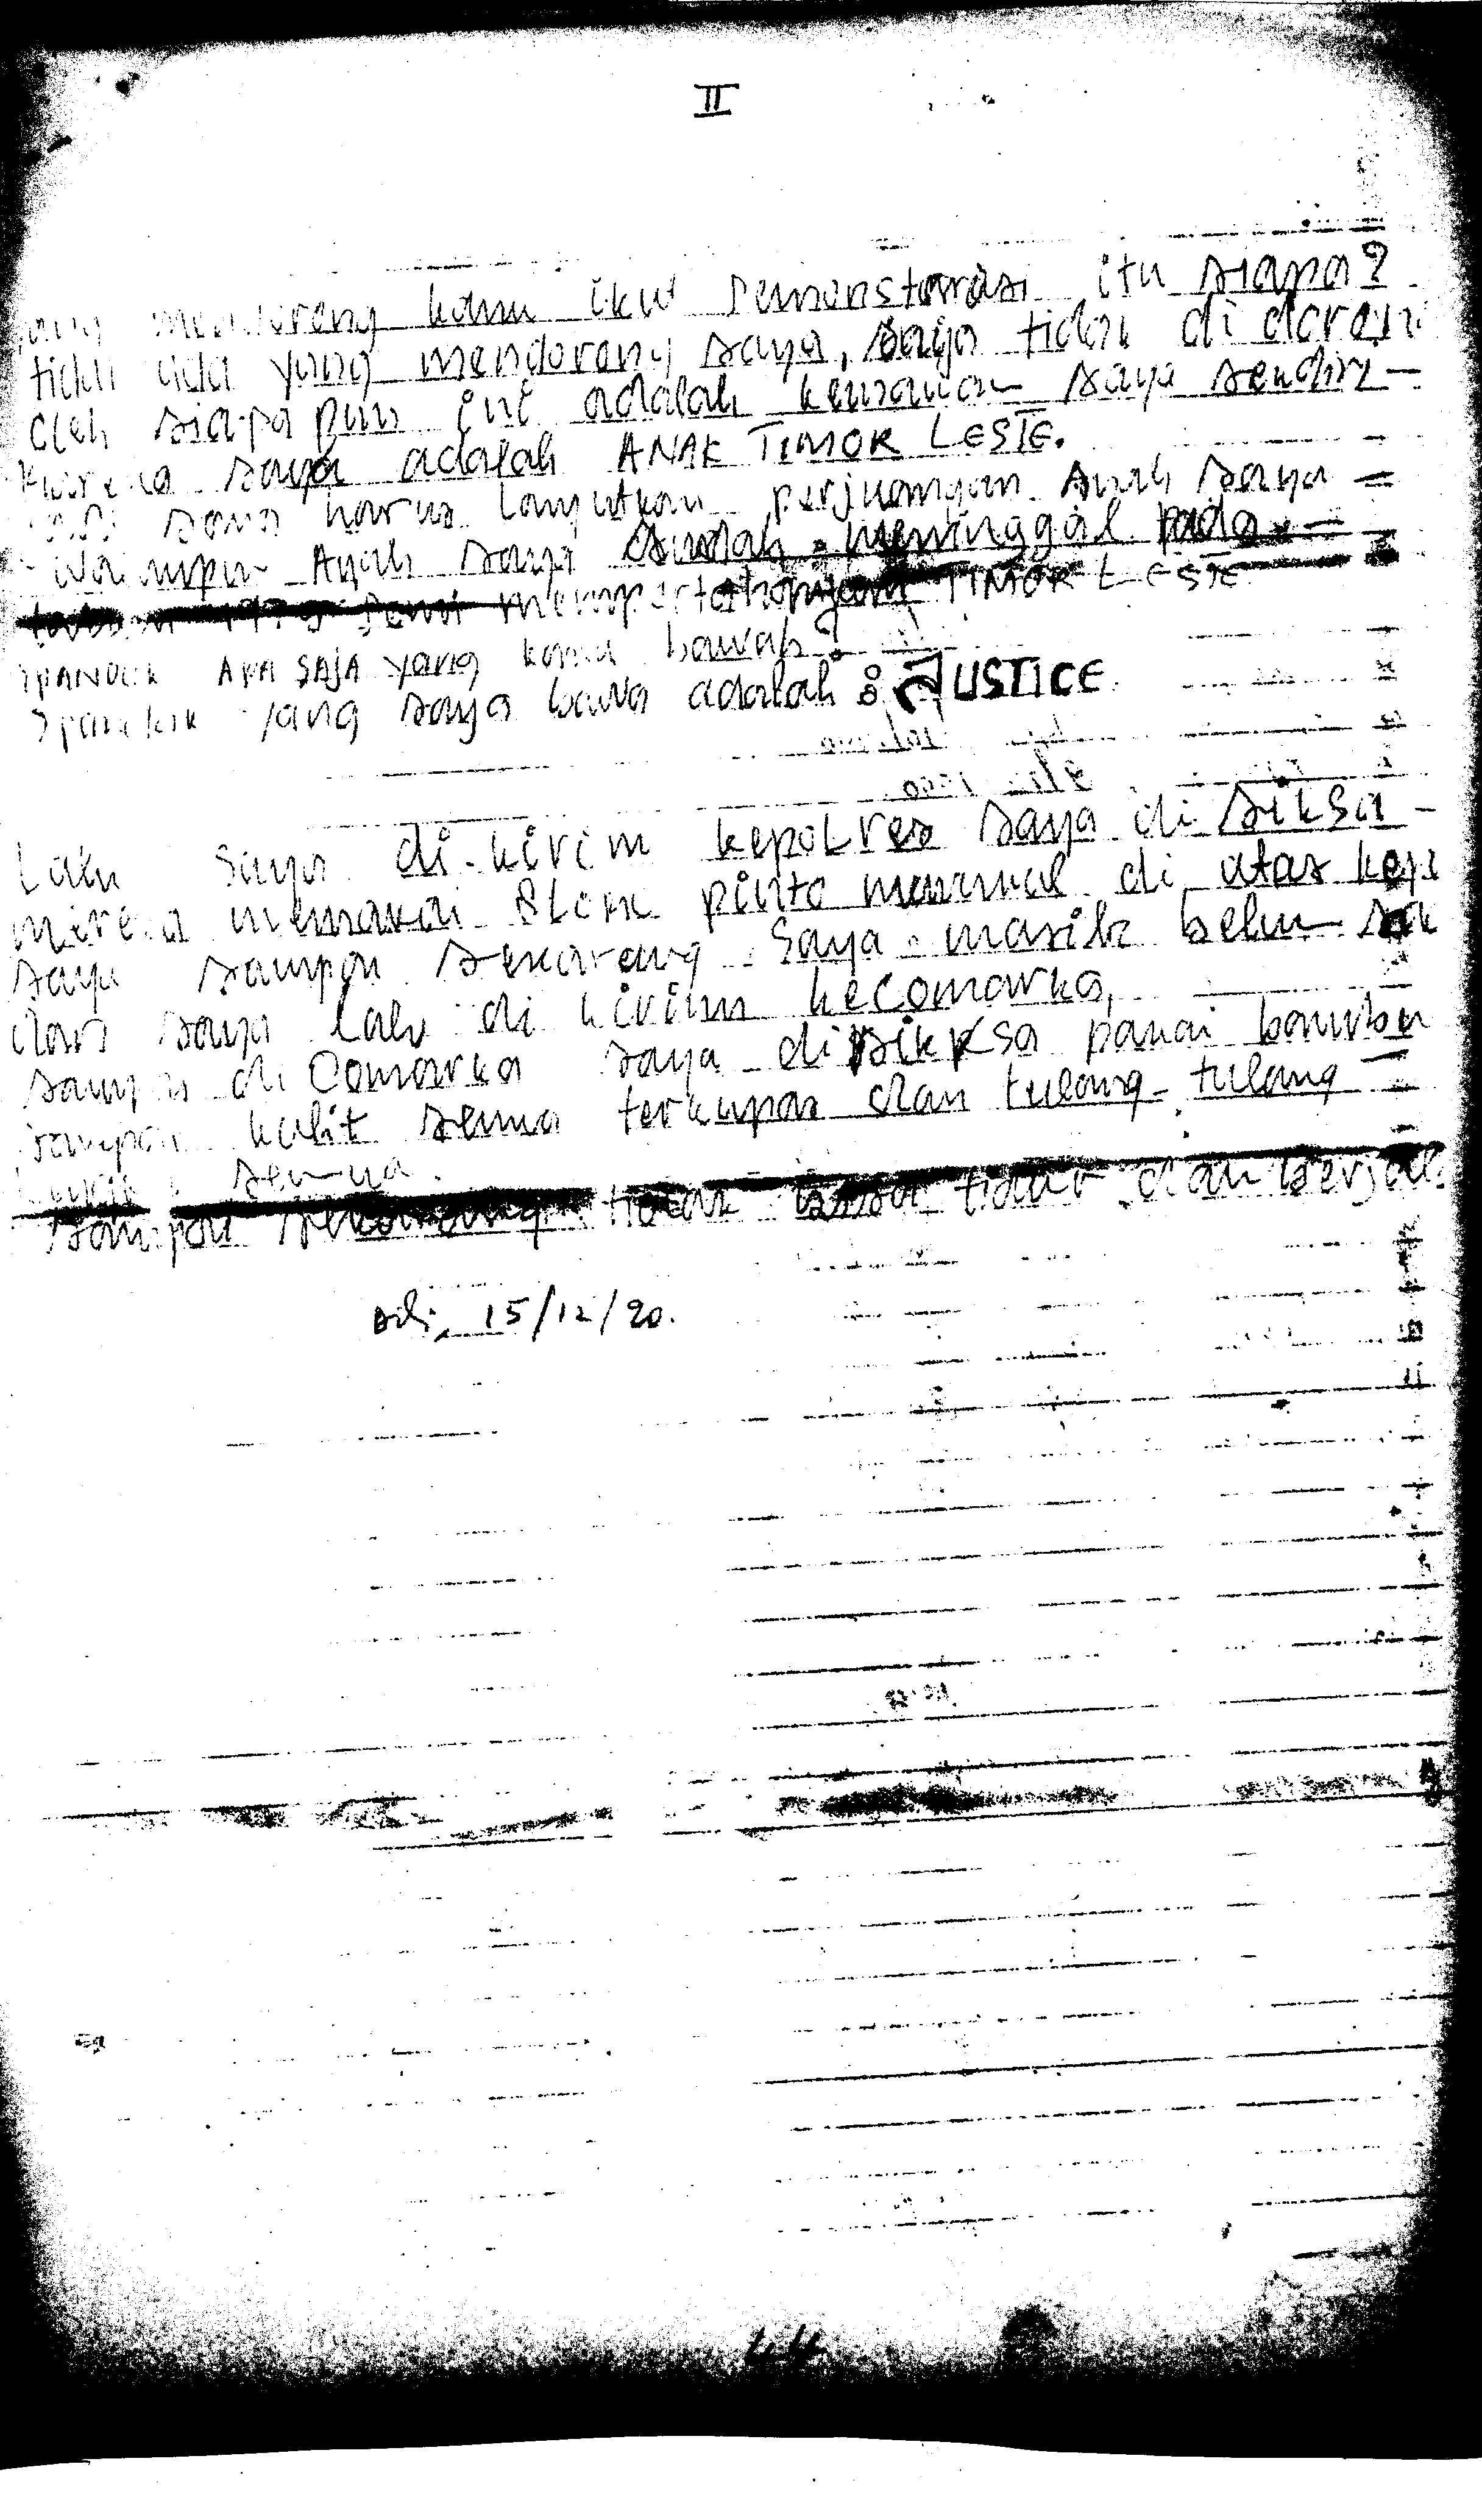 II
kamu ikut Demonstarasi itu siapa?
tidak ada yang mendorong saya, saya tidak di dorong
oleh siapa pun ini adalah kemauan saya sendiri-
Karena saya adalah ANAK TIMOR LESTE.
saya harus lanjutkan perjuangan Ayah saya =
Walaupun Ayah saya sudah meninggal pada
Demi mempertahankan TIMOR LESTE
SPANDUK APA SAJA yang kamu bawah?
Spanduk yang saya bawa adalah : JUSTICE
Lalu saya di-kirim kepolres saya di siksa -
mereka memakai Blok pinto manual di atas kepa
saya sampai sekarang saya masih belum
dari saya lalu di kirim kecomarka,
sampai di Comarka saya di siksa pakai bambu
sampai kulit semua terkupas dan tulang-tulang =
semua.
sampai sekarang tidak bisa tidur dan berjal
15/12/90.